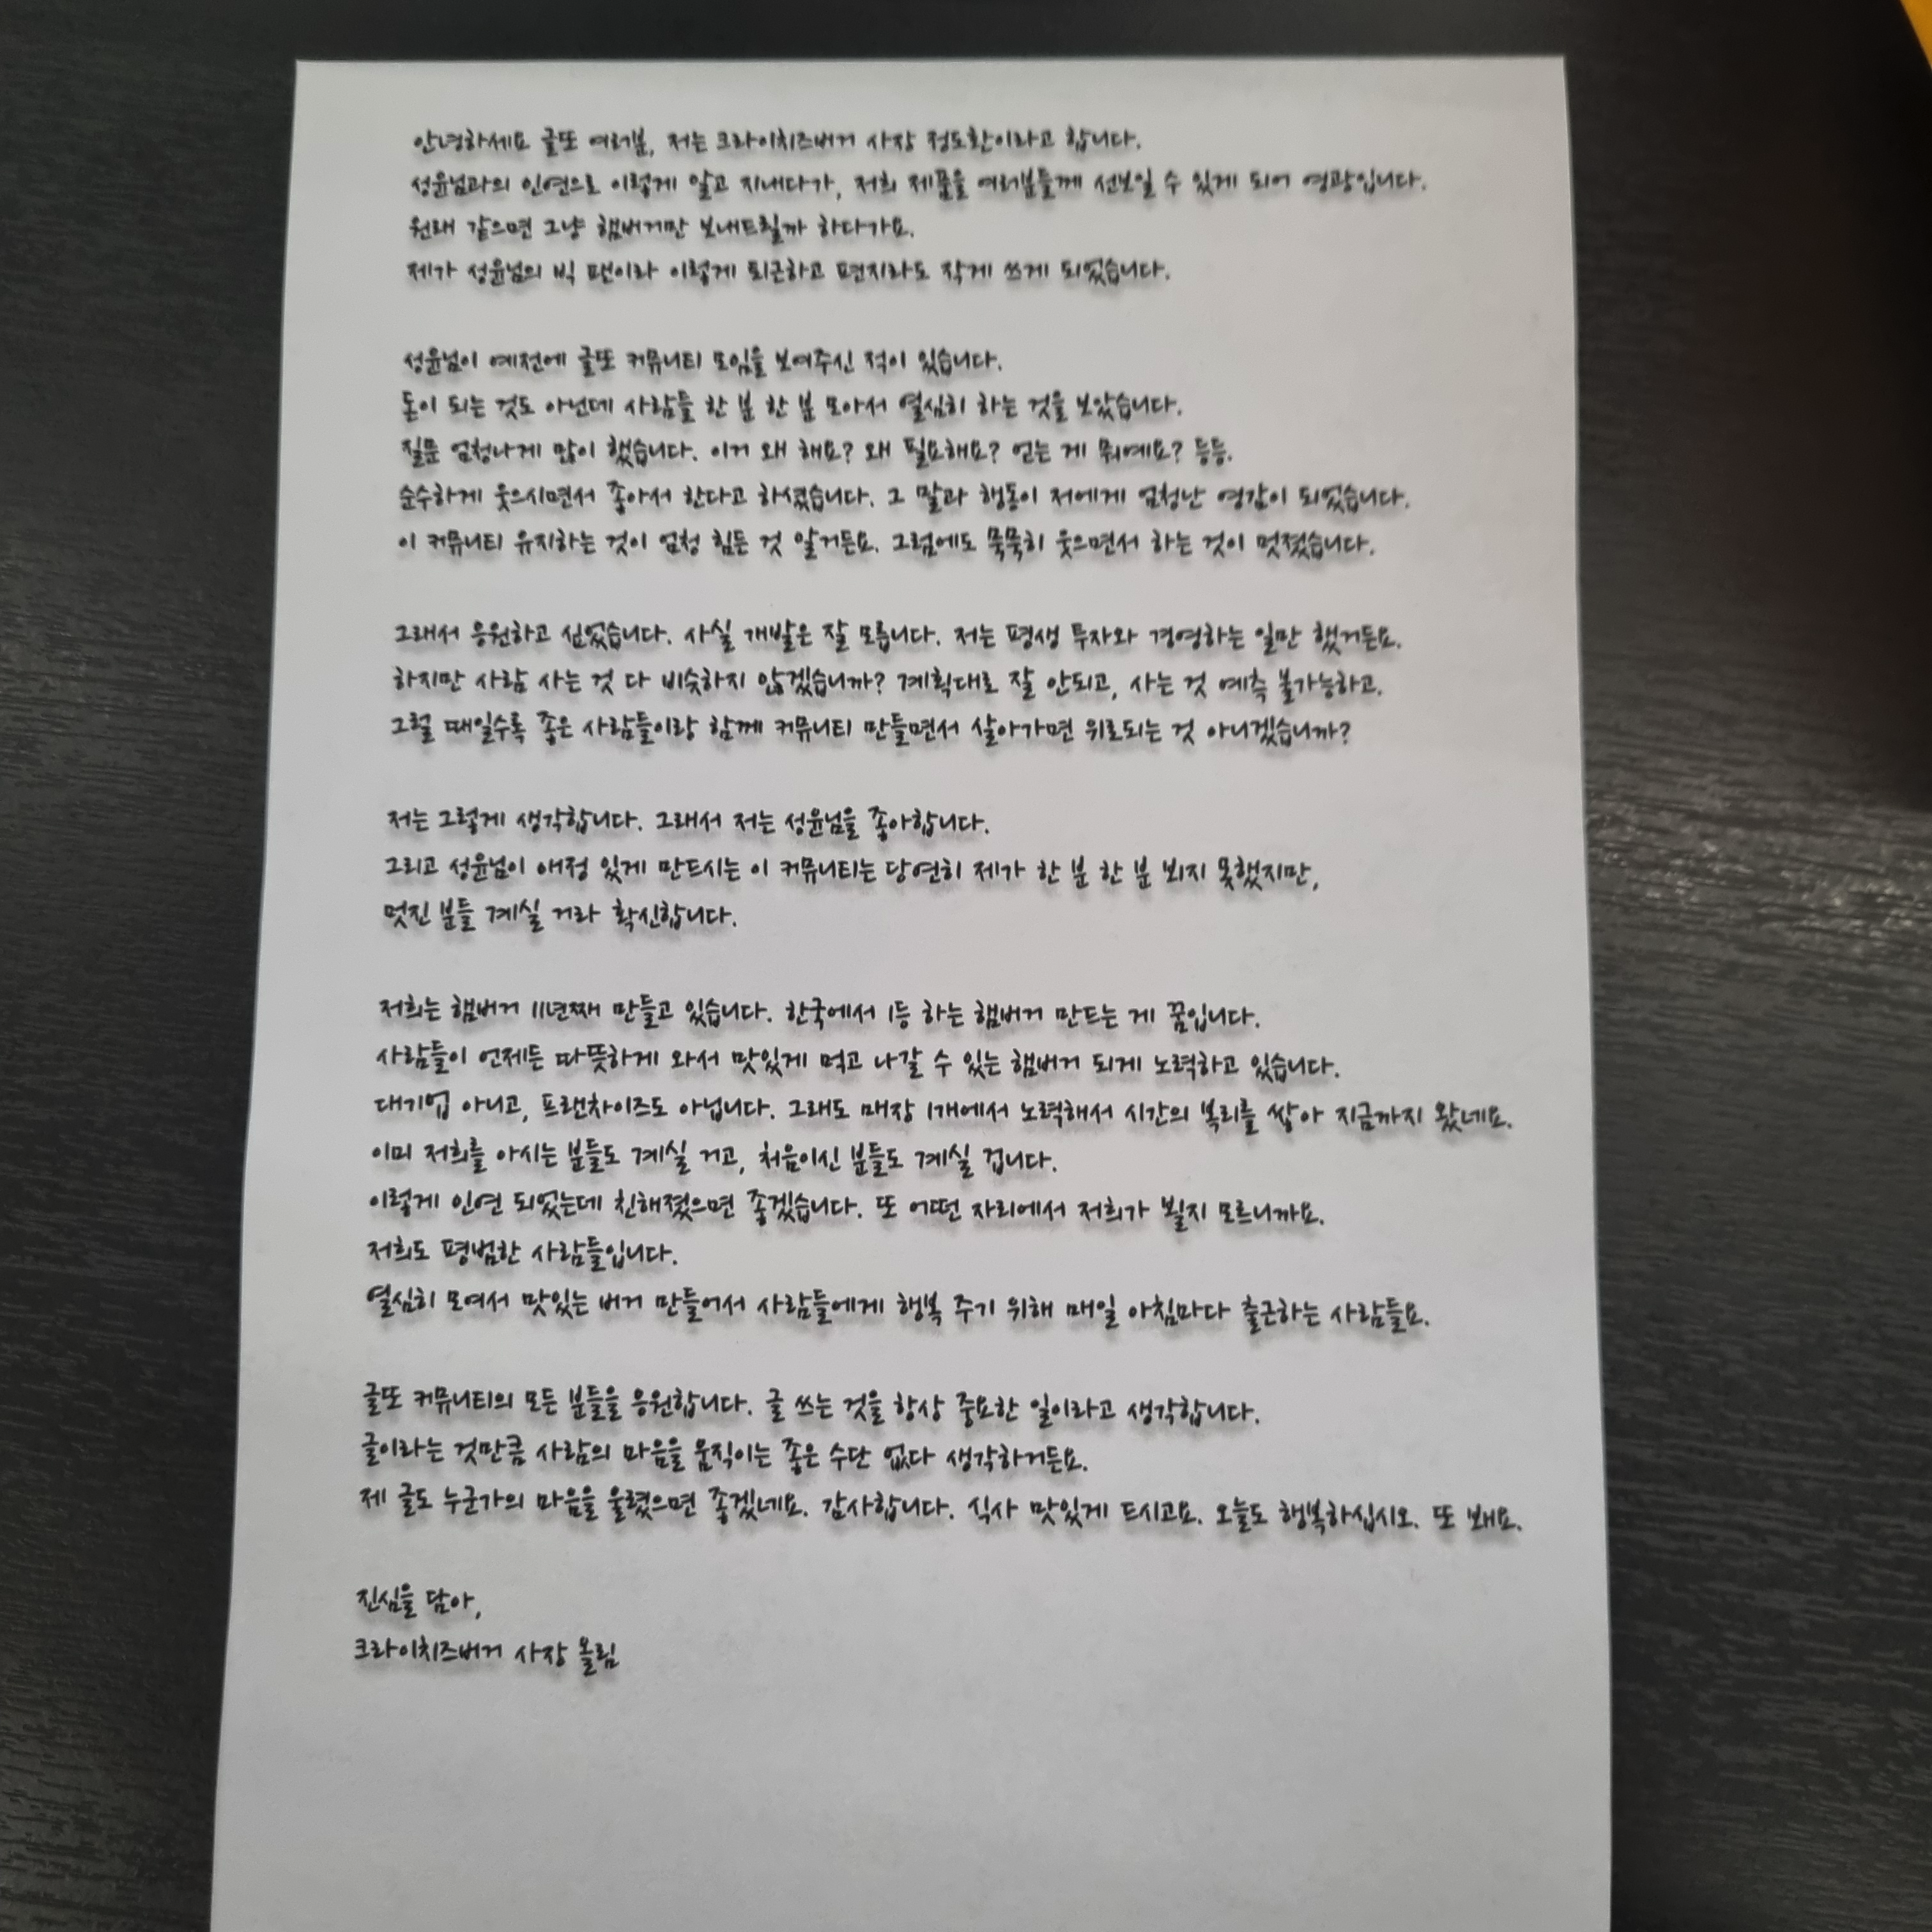 안녕하세요 글또 여러분, 저는 크라이치즈버거 사장 정도환이라고 합니다.
성윤님과의 인연으로 이렇게 알고 지내다가, 저희 제품을 여러분들께 선보일 수 있게 되어 영광입니다.
원래 같으면 그냥 햄버거만 보내드릴까 하다가요.
제가 성윤님의 빅 팬이라 이렇게 퇴근하고 편지라도 작게 쓰게 되었습니다.
성윤님이 예전에 글또 커뮤니티 모임을 보여주신 적이 있습니다.
돈이 되는 것도 아닌데 사람들 한 분 한 분 모아서 열심히 하는 것을 보았습니다.
질문 엄청나게 많이 했습니다. 이거 왜 해요? 왜 필요해요? 얻는 게 뭐예요? 등등.
순수하게 웃으시면서 좋아서 한다고 하셨습니다. 그 말과 행동이 저에게 엄청난 영감이 되었습니다.
이 커뮤니티 유지하는 것이 엄청 힘든 것 알거든요. 그럼에도 묵묵히 웃으면서 하는 것이 멋졌습니다.
그래서 응원하고 싶었습니다. 사실 개발은 잘 모릅니다. 저는 평생 투자와 경영하는 일만 했거든요.
하지만 사람 사는 것 다 비슷하지 않겠습니까? 계획대로 잘 안되고, 사는 것 예측 불가능하고.
그럴 때일수록 좋은 사람들이랑 함께 커뮤니티 만들면서 살아가면 위로되는 것 아니겠습니까?
저는 그렇게 생각합니다. 그래서 저는 성윤님을 좋아합니다.
그리고 성윤님이 애정 있게 만드시는 이 커뮤니티는 당연히 제가 한 분 한 분 뵈지 못했지만,
멋진 분들 계실 거라 확신합니다.
저희는 햄버거 11년째 만들고 있습니다. 한국에서 1등 하는 햄버거 만드는 게 꿈입니다.
사람들이 언제든 따뜻하게 와서 맛있게 먹고 나갈 수 있는 햄버거 되게 노력하고 있습니다.
대기업 아니고, 프랜차이즈도 아닙니다. 그래도 매장 1개에서 노력해서 시간의 복리를 쌓아 지금까지 왔네요.
이미 저희를 아시는 분들도 계실 거고, 처음이신 분들도 계실 겁니다.
이렇게 인연 되었는데 친해졌으면 좋겠습니다. 또 어떤 자리에서 저희가 뵐지 모르니까요.
저희도 평범한 사람들입니다.
열심히 모여서 맛있는 버거 만들어서 사람들에게 행복 주기 위해 매일 아침마다 출근하는 사람들요.
글또 커뮤니티의 모든 분들을 응원합니다. 글 쓰는 것을 항상 중요한 일이라고 생각합니다.
글이라는 것만큼 사람의 마음을 움직이는 좋은 수단 없다 생각하거든요.
제 글도 누군가의 마음을 울렸으면 좋겠네요. 감사합니다. 식사 맛있게 드시고요. 오늘도 행복하십시오. 또 봬요.
진심을 담아,
크라이치즈버거 사장 올림